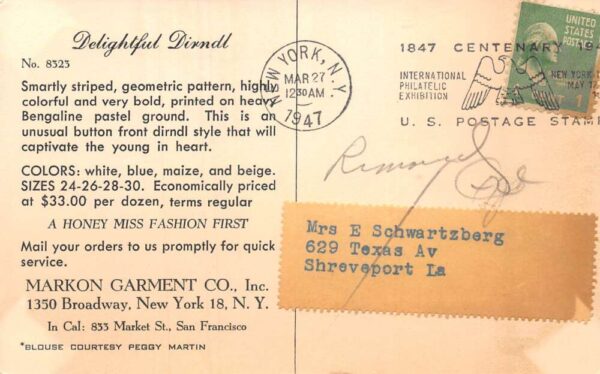 Delightful Dirndl
No. 8323
Smartly striped, geometric pattern, highly
colorful and very bold, printed on heavy
Bengaline pastel ground. This is an
unusual button front dirndl style that will
captivate the young in heart.
COLORS: white, blue, maize, and beige.
SIZES 24-26-28-30. Economically priced
at $33.00 per dozen, terms regular
A HONEY MISS FASHION FIRST
Mail your orders to us promptly for quick
service.
MARKON GARMENT CO., Inc.
1350 Broadway, New York 18, N. Y.
In Cal: 833 Market St., San Francisco
*BLOUSE COURTESY PEGGY MARTIN
NEW YORK, N.Y.
MAR 27
12 30 AM
1947
1847 CENTENARY 194
INTERNATIONAL
PHILATELIC
EXHIBITION
NEW YORK
MAY 17
U. S. POSTAGE STAM
UNITED
STATES
POSTAGE
1
Mrs E Schwartzberg
629 Texas Av
Shreveport La